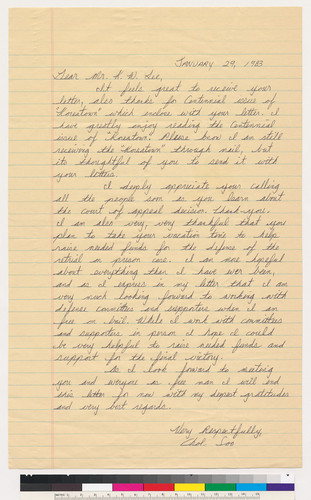 January 29, 1983
Dear Mr. K. W. Lee,
It feels great to receive your
letter, also thanks for Centennial issue of
"Koreatown" which enclose with your letter. I
have greatly enjoy reading the Centennial
issue of "Koreatown." Please know I am still
receiving the "Koreatown" through mail, but
its thoughtful of you to send it with
your letters.
I deeply appreciate your calling
all the people soon as you learn about
the court of appeal decision, thank-you.
I am also very, very thankful that you
plan to take your vacation time to help
raise needed funds for the defense of the
retrial in prison case. I am more hopeful
about everything than I have ever been,
and as I express in my letter that I am
very much looking forward to working with
defense committees and supporters when I am
free on bail. While I work with committees
and supporters in person I hope I could
be very helpful to raise needed funds and
support for the final victory.
As I look forward to meeting
you and everyone as free man I will end
this letter for now with my deepest gratitudes
and very best regards.
Very Respectfully,
Chol Soo